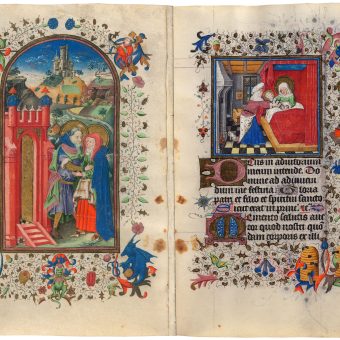 Deus in adiutorium
meum intende. Do
mine ad adiuuan
dum me festina Gloria
patri et filio et spiritui sancto
sicut erat in princ
Memento salutis auc
tor quod nostri quon
dam corporis ex illi